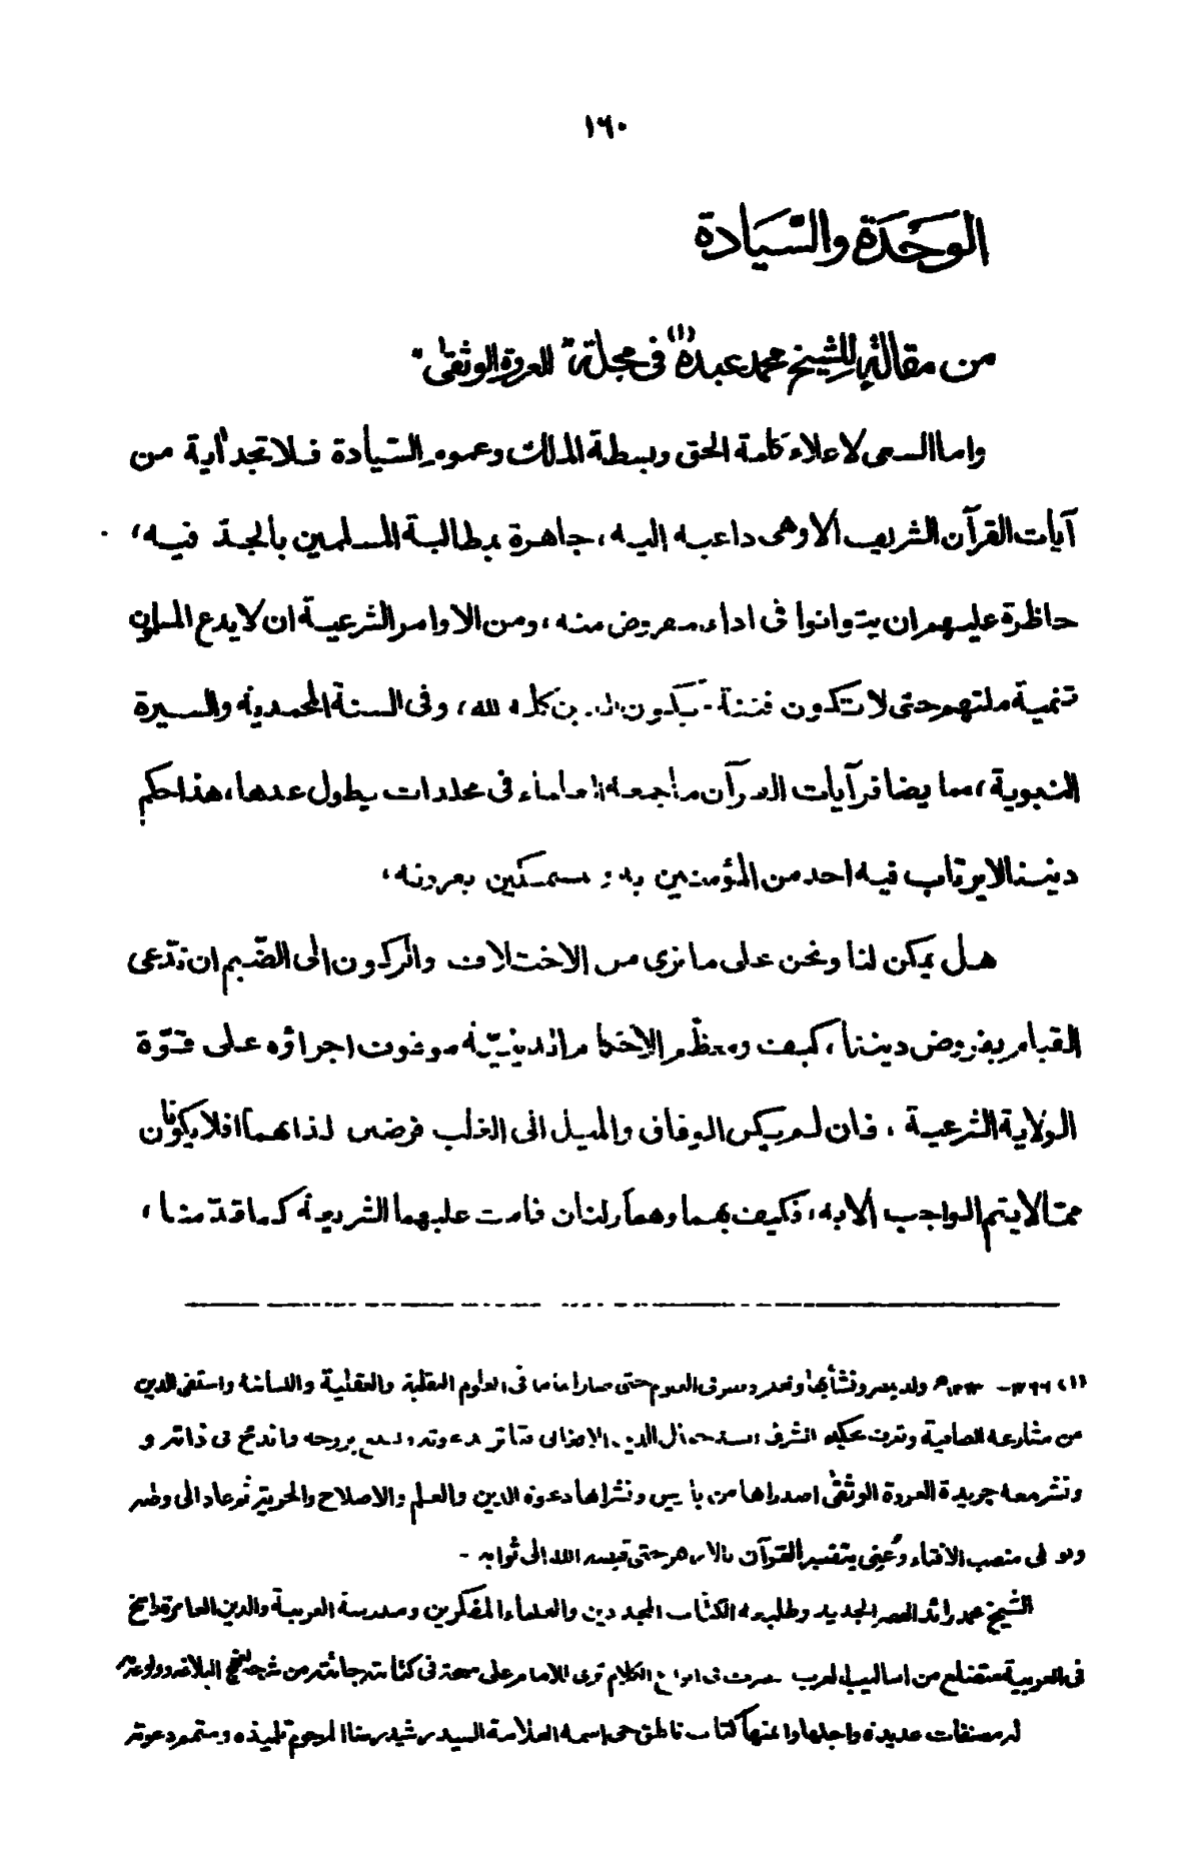 ١٦٠
الوَحَدَة والسَّيَادة
من مقالة للشيخ محمد عبده (١) فى مجلة "العروة الوثقىٰ"
واما السعى لاعلاء كلمة الحق وبسطة الملك وعموم السّيادة فلا تجد آية من
آيات القرآن الشريف الا وهى داعية إليه، جاهرة بمطالبة المسلمين بالجدّ فيه،
حاظرة عليهم ان يتوانوا فى اداء مفروض منه، ومن الاوامر الشرعية ان لا يدع المسلمون
تنمية ملتهم حتى لا تكون فتنة ويكون الدين كله لله، وفى السنة المحمدية والسيرة
النبوية، مما يضافر آيات القرآن ما جمعه العلماء فى مجلدات يطول عدها، هذا حكم
ديننا لا يرتاب فيه احد من المؤمنين به و مستمسكين بعروته،
هل يمكن لنا ونحن على ما نرى من الاختلاف والركون الى الضّيم ان ندّعى
القيام بفروض ديننا، كيف ومعظم الاحكام الدينيّة موقوف اجراؤه على قوّة
الولاية الشرعية، فان لم يكن الوفاق والميل الى الغلب فرضين لذاتهما افلا يكونان
ممّا لا يتم الواجب الا به، فكيف بهما وهما ركنان قامت عليهما الشريعة كما قدّمنا،
(١) ١٢٦٦ - ١٣٢٣ھ ولد بمصر ونشأ بها و حتى صار اماما فى العلوم النقلية والعقلية واللسانية واستقى الدين
من مشارعه الصافية السيد جمال الدين الافغانى فتأثر بدعوته بروحه واندمج فى ذاته و
ونشر معه جريدة العروة الوثقىٰ اصدراها من باريس ونشراها دعوة الدين والعلم والاصلاح والحرية ثم عاد الى وطنه
وولى منصب الافتاء وعُنِى بتفسير القرآن بالازهر حتى قبضه الله الى ثوابه -
الشيخ محمد رائد العصر الجديد الكتّاب المجددين والعلماء المفكرين ومدرسة العربية والدين العامرة راسخ
فى العربية متضلع من اساليب العرب متصرف فى انواع الكلام ترى للامام على مسحة فى كتابته جائته من شرحه لنهج البلاغة وولوعه به
له مصنفات عديدة واجلها وانمها كتاب ناطق حى اسمه العلامة السيد رشيد رضا المرحوم تلميذه ومتمم دعوته